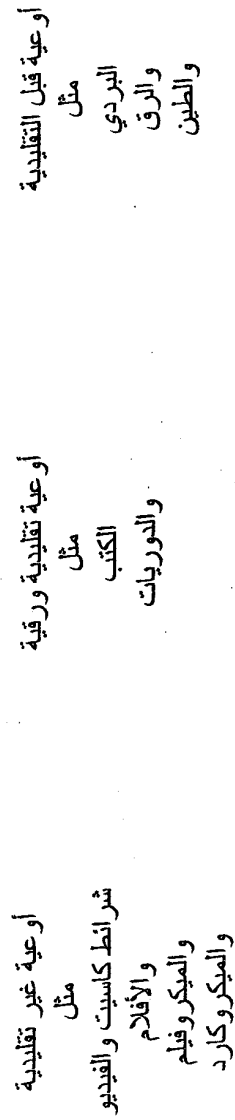 أوعية قبل التقليدية
مثل
البردي
والرق
والطين
أوعية تقليدية ورقية
مثل
الكتب
والدوريات
أوعية غير تقليدية
مثل
شرائط كاسيت والفيديو
والأفلام
والميكروفيلم
والميكروكارد